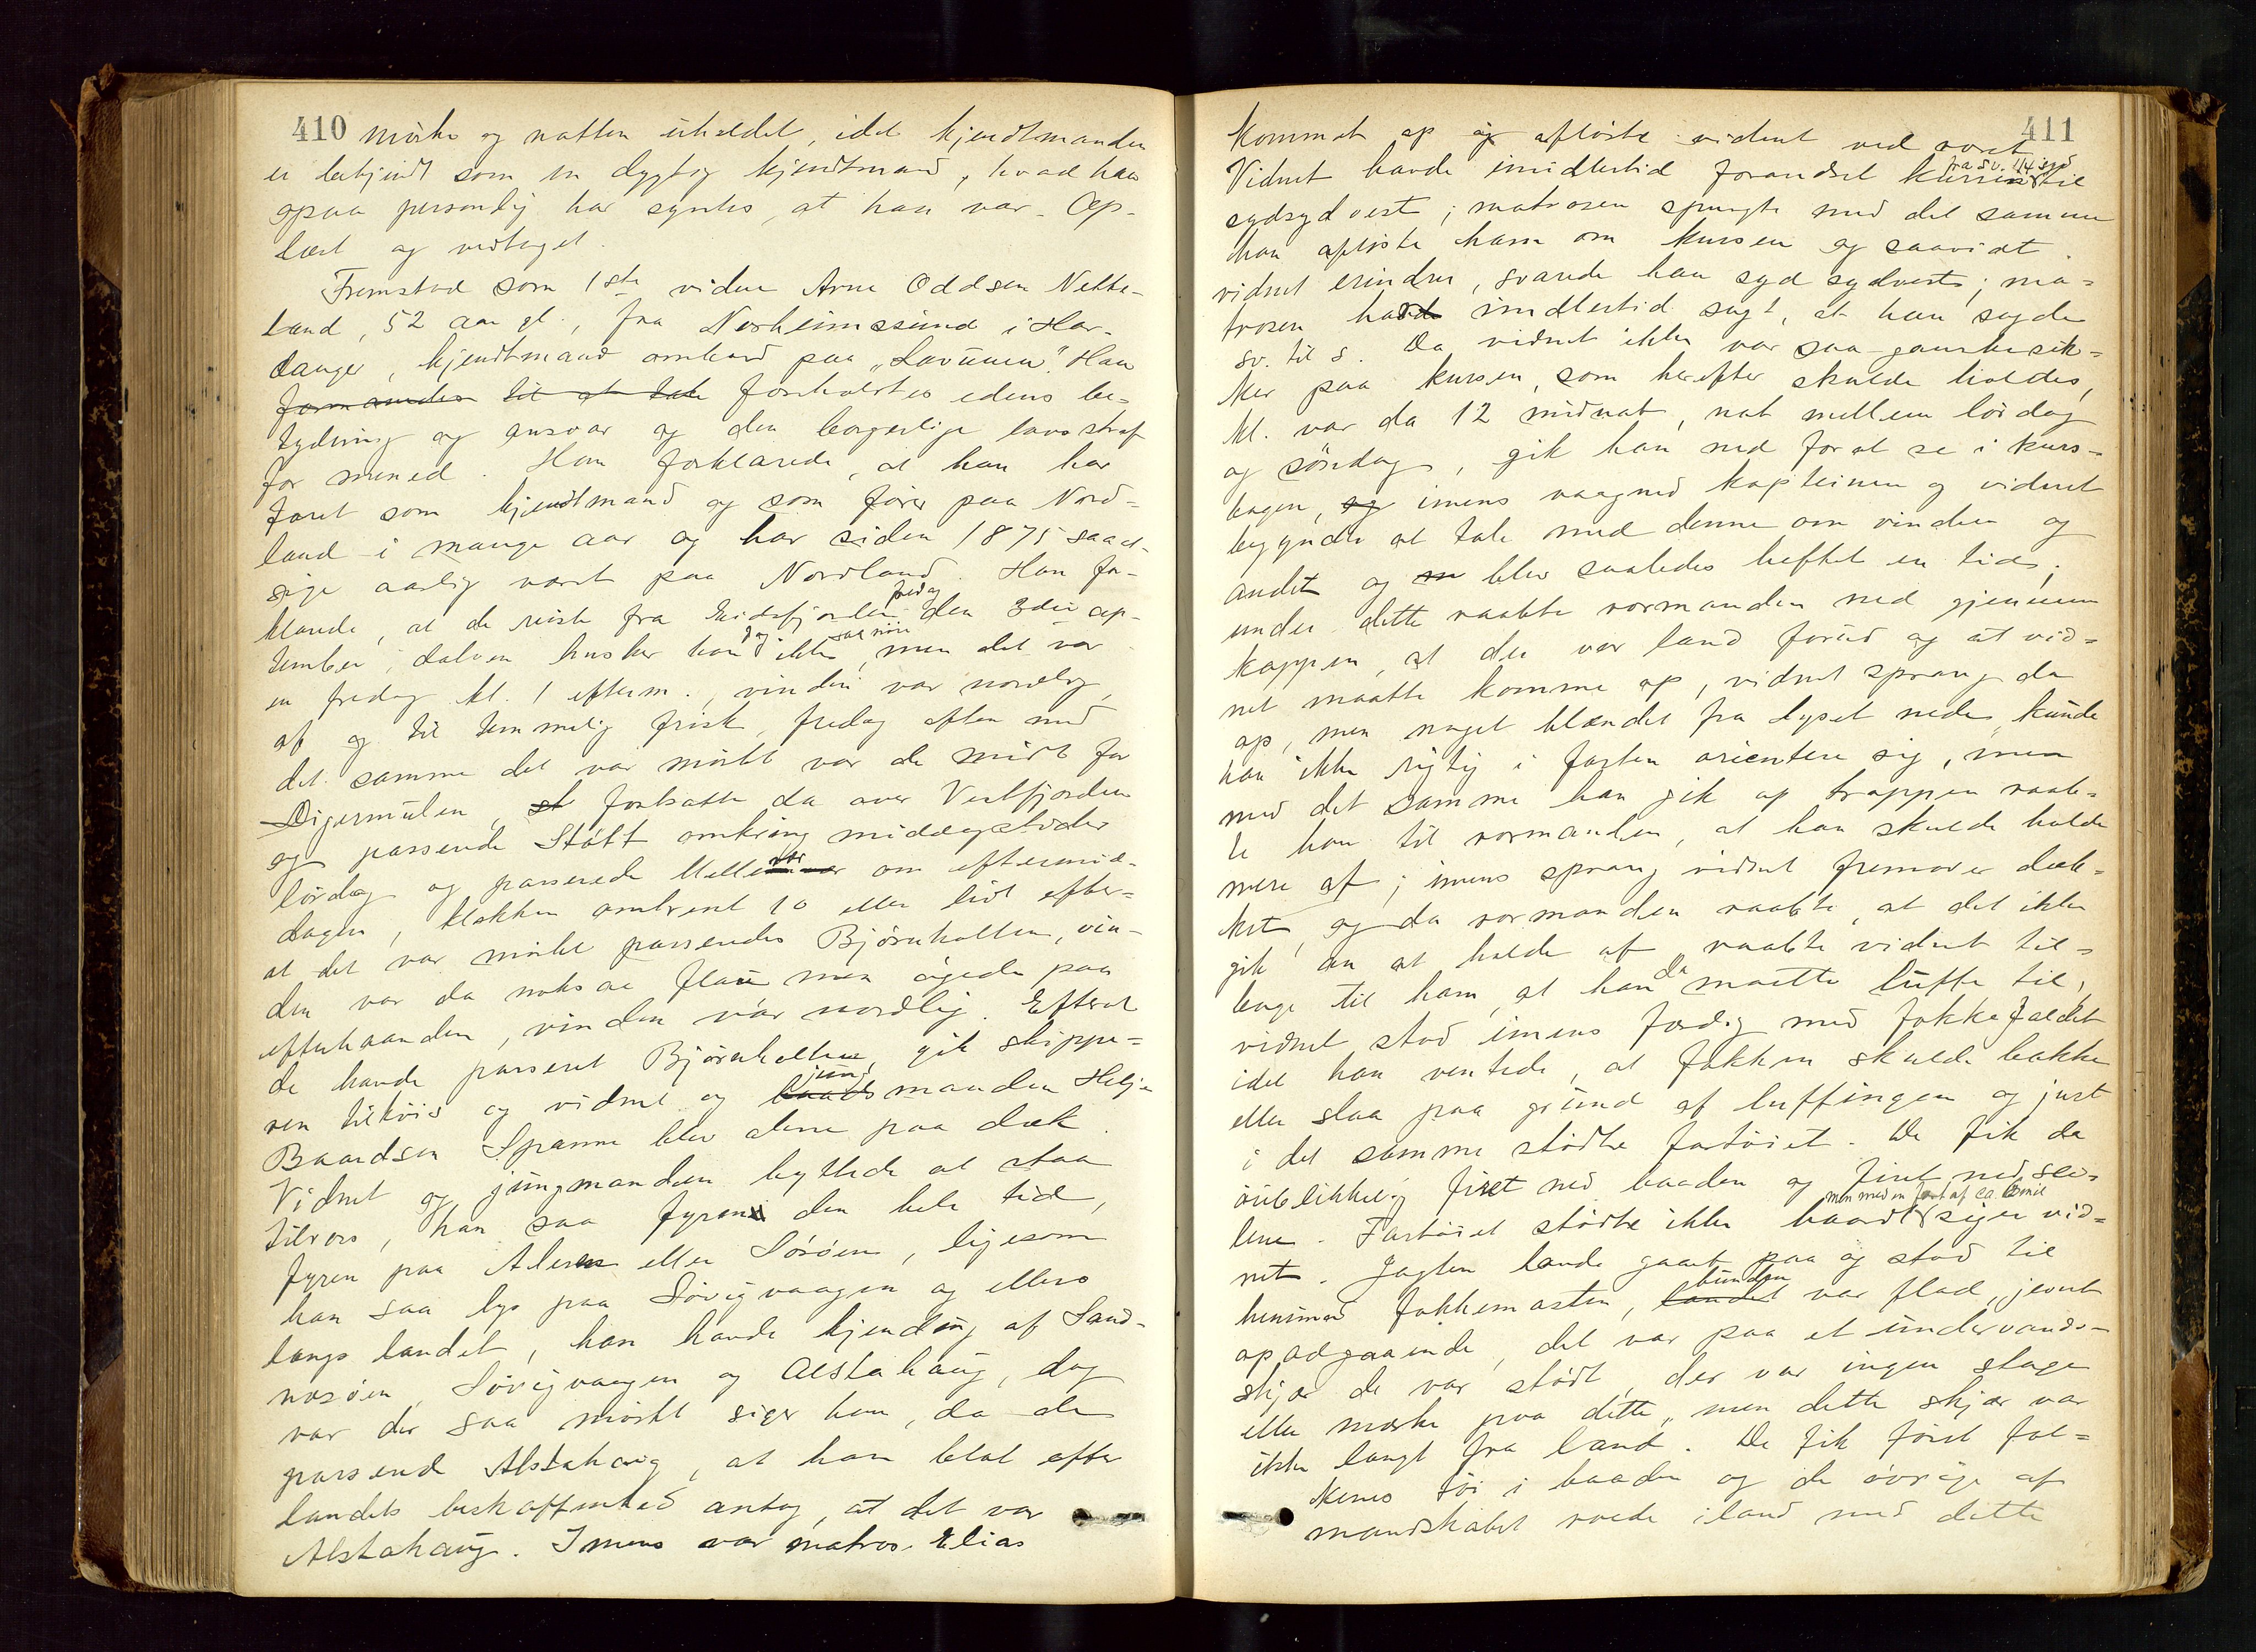 410 mörke og natten uheldet, idet kjendtmanden
er bekjendt som en dygtig kjendtmand, hvad han
ogsaa personlig har syntes, at han var. Op-
læst og vedtaget.
Fremstod som 1ste vidne Arne Oddsen Nette-
land, 52 aar gl., fra Norheimssund i Har-
danger, kjendtmand ombord paa "Lovunen". Han
formanedes til at tale foreholdtes edens be-
tydning og ansvar og den borgerlige lovs straf
for mened. Han forklarede, at han har
faret som kjendtmand og som fører paa Nord-
land i mange aar og har siden 1875 saa at
sige aarlig været paa Nordland. Han for-
klarede, at de reiste fra Eidsfjorden fredag den 3die sep-
tember, datoen husker han dog ikke saa nöie, men det var
en fredag kl. 1 efterm., vinden var nordlig,
af og til temmelig frisk, fredag aften med
det samme det var mörkt var de midt for
Digermulen, fortsatte da over Vestfjorden
og passerede Stött omkring middagstider
lördag og passerede om eftermid-
dagen, klokken omtrent 10 eller lidt efter-
at det var mörkt passeredes Björnholten, vin-
den var da noksaa flau men ögede paa
efterhaanden, vinden var nordlig. Efterat
de havde passeret Björnholten, gik skippe-
ren tilköis og vidnet og baads jungmanden Helje
Baardsen Spanne blev alene paa dæk.
Vidnet og jungmanden byttede at staa
tilrors, han saa fyrene den hele tid,
fyren paa Alsten eller Sörøen, ligesom
han saa lys paa Sövigvaagen og ellers
langs landet, han havde kjending af Sand-
næsøen, Sövigvaagen og Alstahaug, dog
var der saa mörkt siger han, da de
passerede Alstahaug, at han blot efter
landets beskaffenhed antog, at det var
Alstahaug. Imens var matros Elias
411
kommet op og aflöste vidnet ved roret
Vidnet havde imidlertid forandret kursen fra S.V. 1/4 syd til
sydsydvest; matrosen spurgte med det samme
han aflöste ham om kursen og saavidt
vidnet erindrer, svarede han syd sydvest; ma-
trosen havde imidlertid sagt, at han sagde
sv. til s. Da vidnet ikke var saa ganske sik-
ker paa kursen, som herefter skulde holdes,
kl. var da 12 midnat, nat mellem lördag
og söndag, gik han ned for at se i kurs-
bogen, og imens vaagned kapteinen og vidnet
begyndte at tale med denne om vinden og
andet og blev saaledes heftet en tid;
under dette raabte rormanden ned gjennem
kappen, at der var land forud og at vid-
net maatte komme op, vidnet sprang da
op, men noget blændet fra lyset nede, kunde
han ikke rigtig i farten orientere sig, men
med det samme han gik op trappen raab-
te han til rormanden, at han skulde holde
mere af; imens sprang vidnet fremover dæk-
ket, og da rormanden raabte, at det ikke
gik an at holde af raabte vidnet til-
bage til ham, at han da maatte luffe til,
vidnet stod imens færdig med fokkefaldet
idet han ventede, at fokken skulde bakke
eller slaa paa grund af luffingen og just
i det samme stödte fartöiet. De fik da
öieblikkelig firet ned baaden og firet ned sei-
lene. Fartöiet stödte ikke haardt men med en fart af ca. mil siger vid-
net. Jagten havde gaaet paa og stod til
henimod fokkemasten, landet bunden var flad, jevnt
opadgaaende, det var paa et undervands-
skjær de var stödt, der var ingen stage
eller mærke paa dette, men dette skjær var
ikke langt fra land. De fik först fol-
kenes töi i baaden og de övrige af
mandskabet roede iland med dette